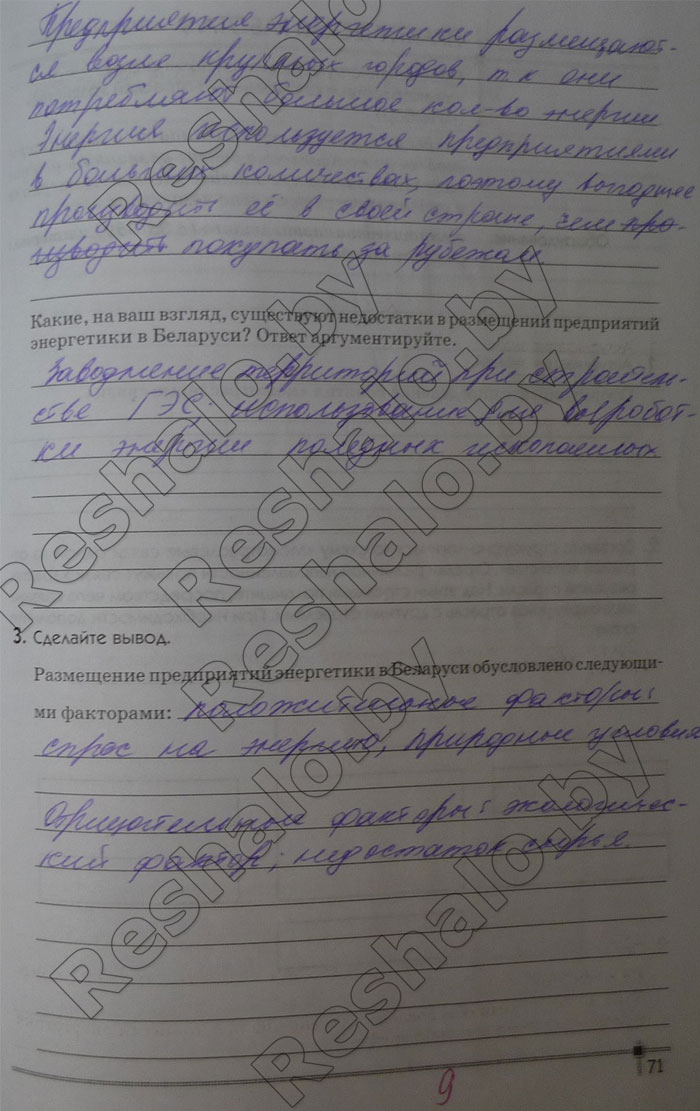 Предприятия энергетики размещают-
ся возле крупных городов, т к они
потребляют большое кол-во энергии
Энергия используется предприятиями
в больших количествах, поэтому выгоднее
производить её в своей стране, чем про-
изводить покупать за рубежом
Какие, на ваш взгляд, существуют недостатки в размещении предприятий
энергетики в Беларуси? Ответ аргументируйте.
Заводнение территорий при строитель-
стве ГЭС использование для выработ-
ки энергии полезных ископаемых
3. Сделайте вывод.
Размещение предприятий энергетики в Беларуси обусловлено следующи-
ми факторами: положительные факторы:
спрос на энергию, природные условия
Отрицательные факторы: экологичес-
кий фактор; недостаток сырья.
71
9
Reshalo.by
Reshalo.by
Reshalo.by
Reshalo.by
Reshalo.by
Reshalo.by
Reshalo.by